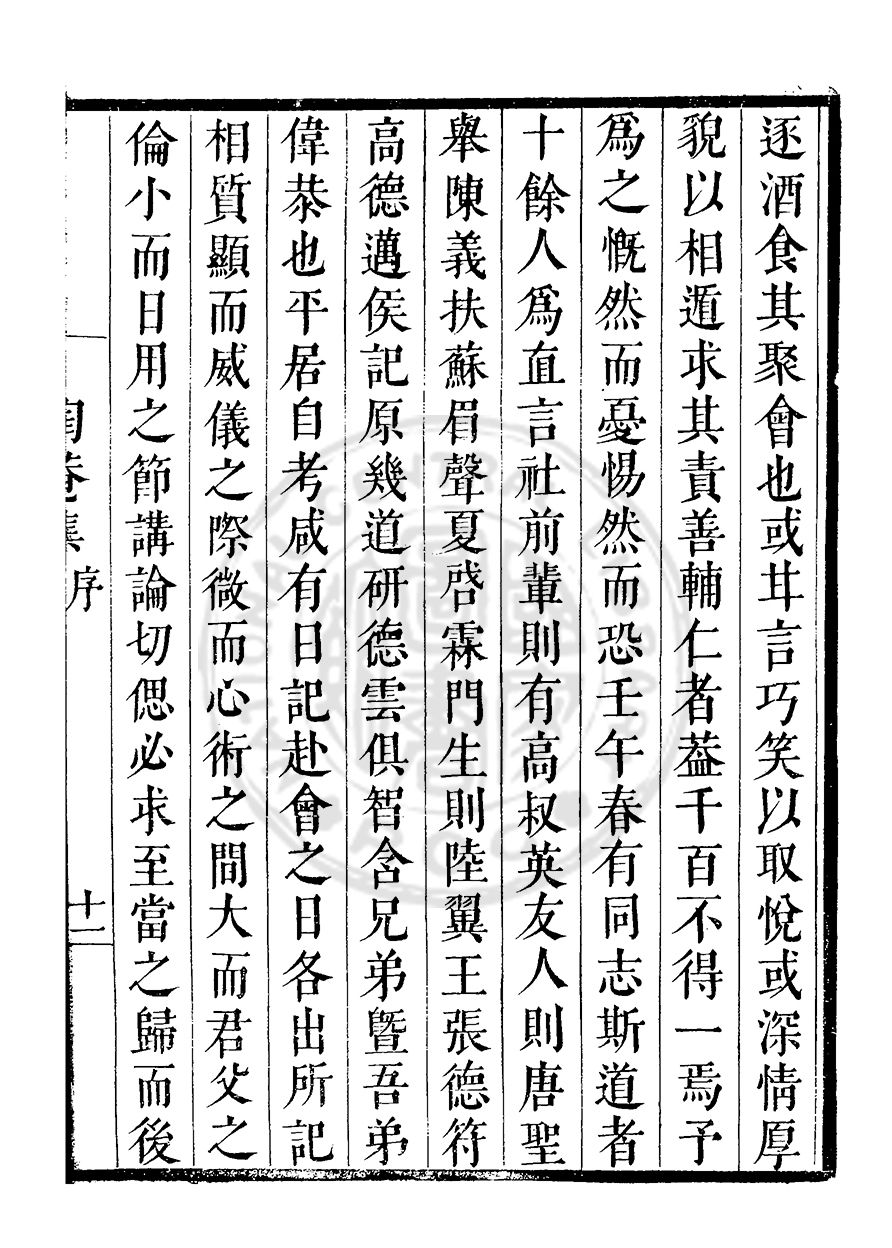 逐酒食其聚會也或甘言巧笑以取悅或深情厚
貌以相遁求其責善輔仁者葢千百不得一焉予
爲之慨然而憂惕然而恐壬午春有同志斯道者
十餘人爲直言社前輩則有高叔英友人則唐聖
舉陳義扶蘇眉聲夏啓霖門生則陸翼王張德符
高德邁侯記原幾道硏德雲俱智含兄弟曁吾弟
偉恭也平居自考咸有日記赴會之日各出所記
相質顯而威儀之際微而心術之間大而君父之
倫小而日用之節講論切偲必求至當之歸而後
陶菴集 序 十一